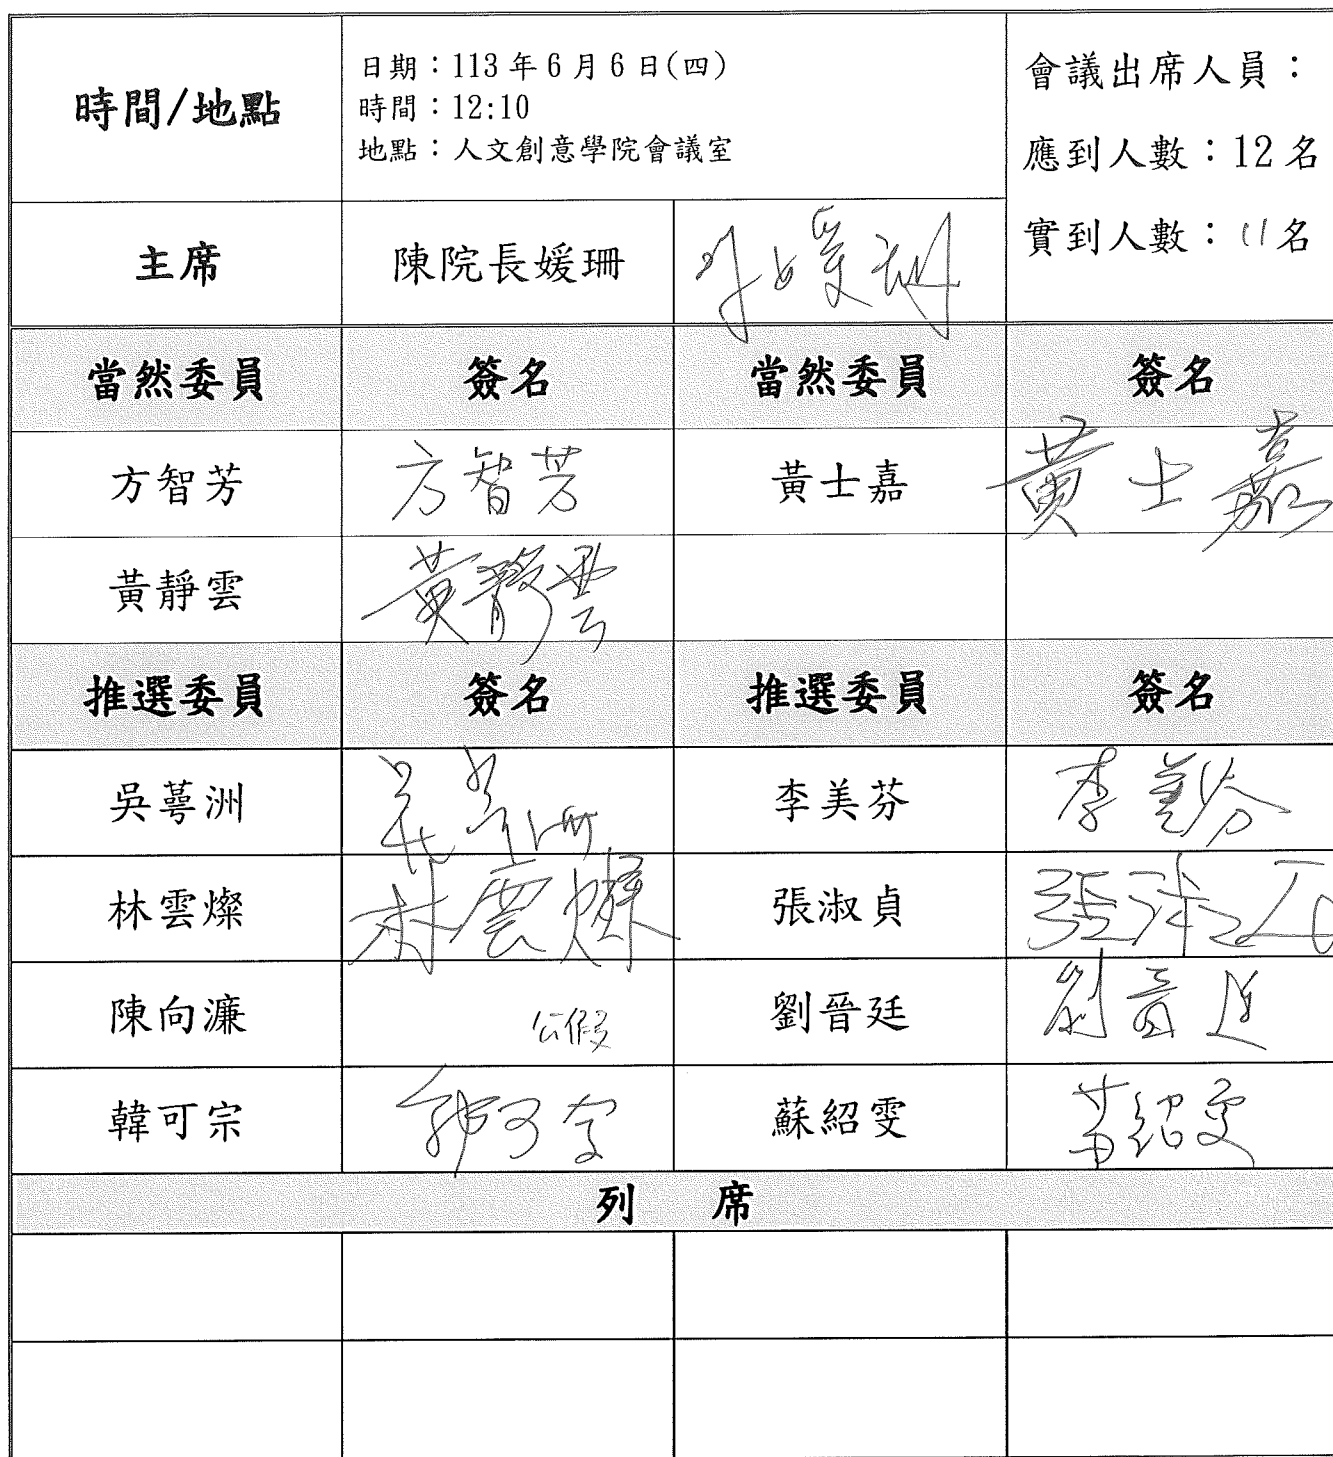 時間/地點
日期：113年6月6日(四)
時間：12:10
地點：人文創意學院會議室
會議出席人員：
應到人數：12名
實到人數：11名
主席 陳院長媛珊 陳媛珊
當然委員 簽名 當然委員 簽名
方智芳 方智芳 黃士嘉 黃士嘉
黃靜雲 黃靜雲
推選委員 簽名 推選委員 簽名
吳萼洲 吳萼洲 李美芬 李美芬
林雲燦 林雲燦 張淑貞 張淑貞
陳向濂 公假 劉晉廷 劉晉廷
韓可宗 韓可宗 蘇紹雯 蘇紹雯
列 席